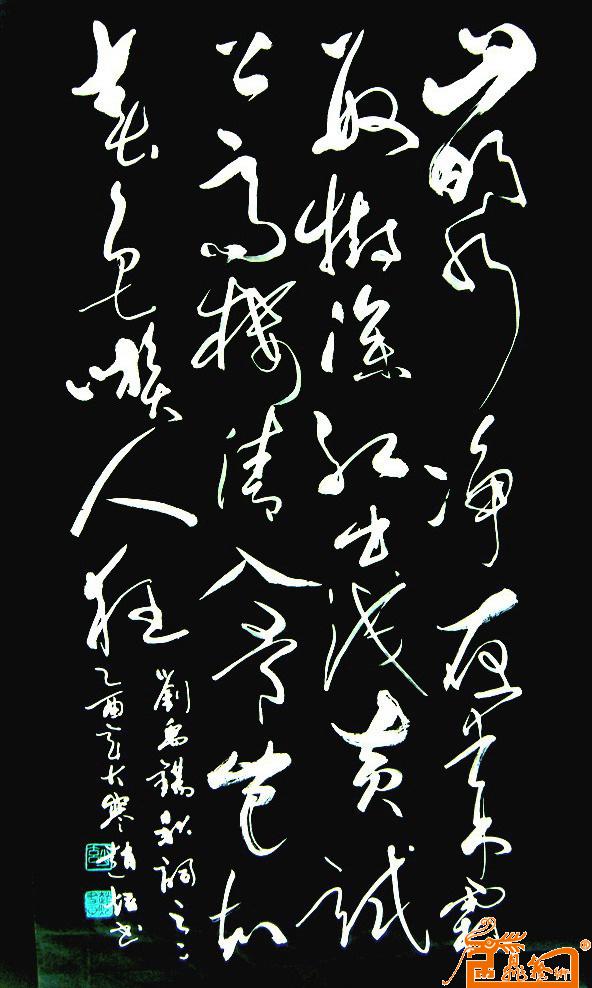 山明水净夜来霜
数樹深红出浅黄试
上高楼清入骨岂如
春色嗾人狂
劉禹锡秋詞之二
乙酉 大寒 书